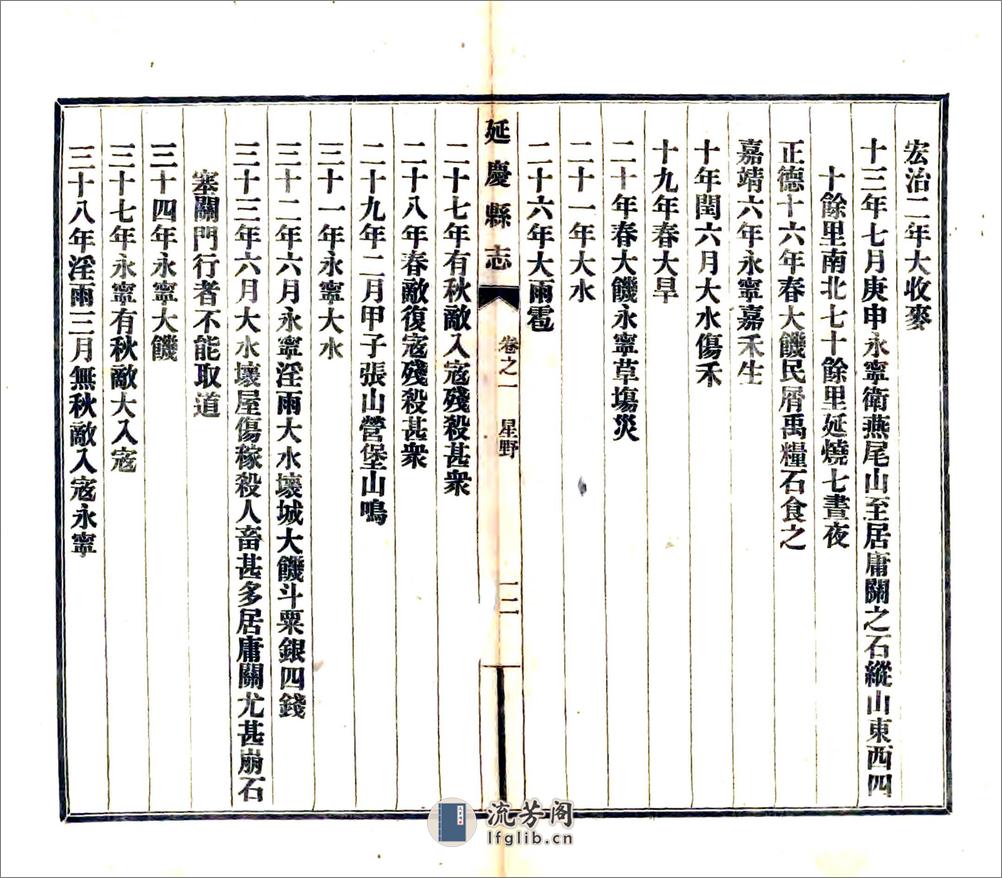 宏治二年大收麥
十三年七月庚申永寧衛燕尾山至居庸關之石縱山東西四
十餘里南北七十餘里延燒七晝夜
正德十六年春大饑民屑禹糧石食之
嘉靖六年永寧嘉禾生
十年閏六月大水傷禾
十九年春大旱
二十年春大饑永寧草塲災
二十一年大水
二十六年大雨雹
延慶縣志
卷之一
星野
二十七年有秋敵入寇殘殺甚衆
二十八年春敵復寇殘殺甚衆
二十九年二月甲子張山營堡山鳴
三十一年永寧大水
三十二年六月永寧淫雨大水壞城大饑斗粟銀四錢
三十三年六月大水壞屋傷稼殺人畜甚多居庸關尤甚崩石
塞關門行者不能取道
三十四年永寧大饑
三十七年永寧有秋敵大入寇
三十八年淫雨三月無秋敵入寇永寧
流芳阁
lfglib.cn